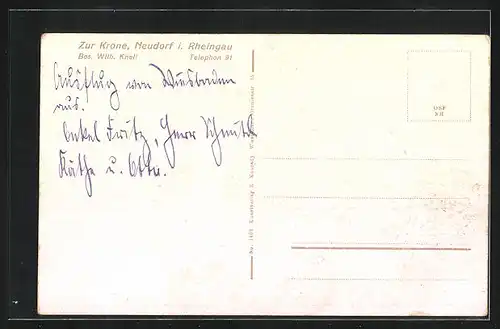 Zur Krone, Neudorf i. Rheingau
Bes. Wilh. Knell Telephon 91
Ausflug von Wiesbaden
aus.
Onkel Fritz, Herr Schmidt
Käthe u. Otto.